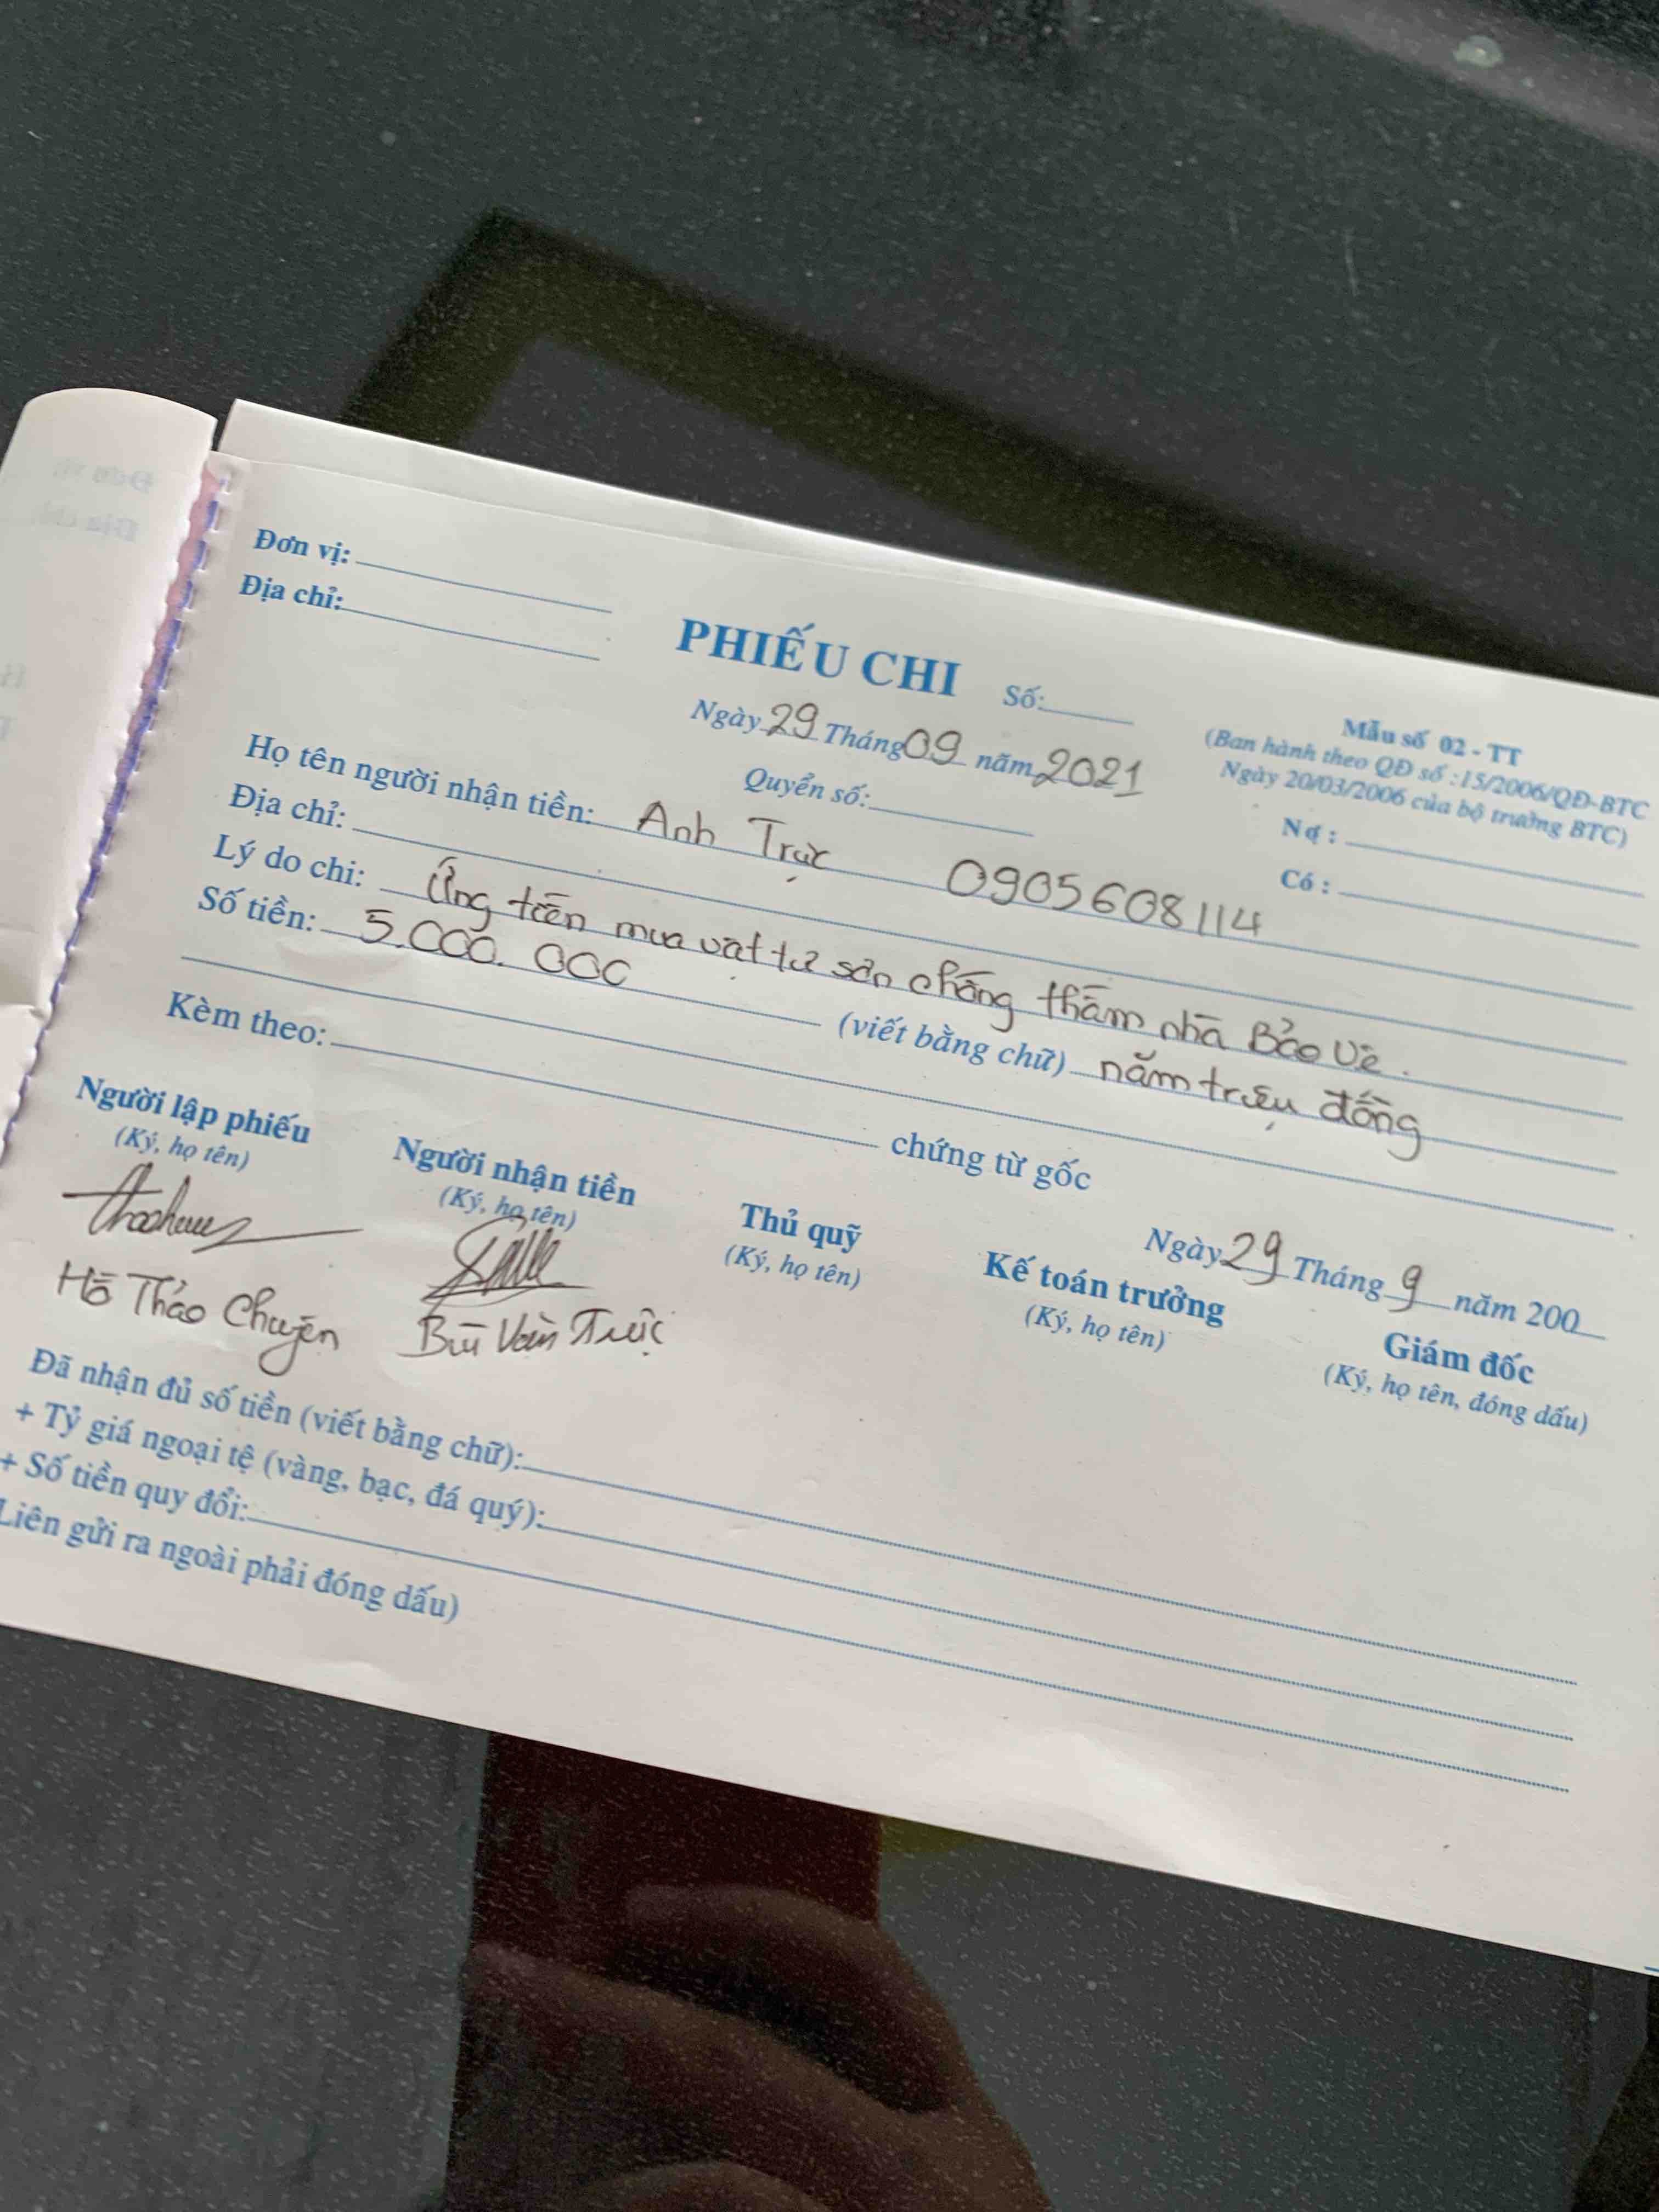 Đơn vị:
Địa chỉ:
PHIẾU CHI
Số:
Mẫu số 02 - TT
(Ban hành theo QĐ số :15/2006/QĐ-BTC
Ngày 20/03/2006 của bộ trưởng BTC)
Ngày 29 Tháng 09 năm 2021
Quyển số:
Nợ :
Có :
Họ tên người nhận tiền: Anh Trực 0905608114
Địa chỉ:
Lý do chi: Ứng tiền mua vật tư sơn chống thấm nhà Bảo Vệ.
Số tiền: 5.000.000 (viết bằng chữ) năm triệu đồng
Kèm theo: chứng từ gốc
Ngày 29 Tháng 9 năm 200
Người lập phiếu
(Ký, họ tên)
Người nhận tiền
(Ký, họ tên)
Thủ quỹ
(Ký, họ tên)
Kế toán trưởng
(Ký, họ tên)
Giám đốc
(Ký, họ tên, đóng dấu)
Hồ Thảo Chuyên
Bùi Văn Trực
Đã nhận đủ số tiền (viết bằng chữ):
+ Tỷ giá ngoại tệ (vàng, bạc, đá quý):
+ Số tiền quy đổi:
Liên gửi ra ngoài phải đóng dấu)